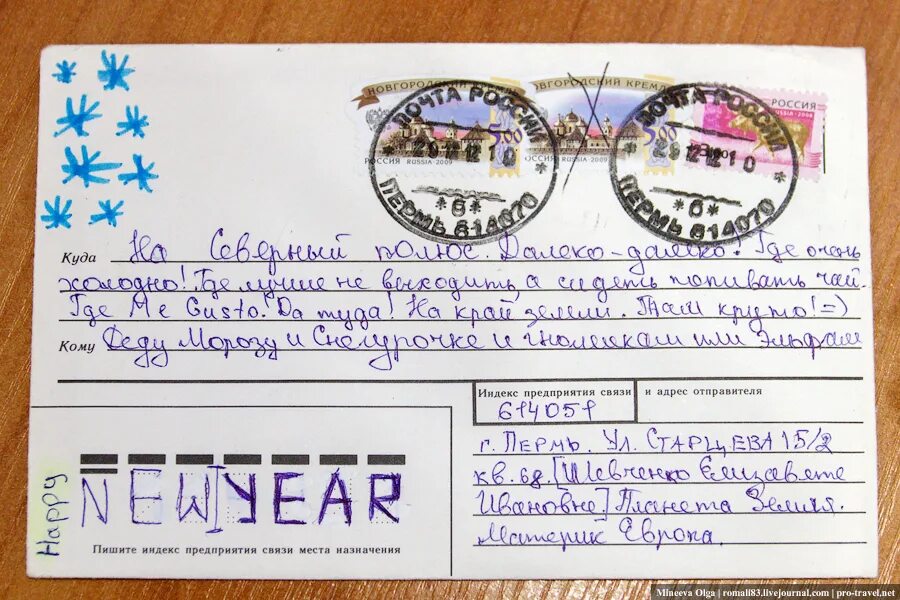 НОВГОРОДСКИЙ КРЕМЛЬ
ОВГОРОДСКИЙ КРЕМЛЬ
5.00
РОССИЯ RUSSIA·2009
5.00
РОССИЯ RUSSIA·2009
РОССИЯ
ПОЧТА РОССИИ
29 12 12 10
*6*
ПЕРМЬ 614070
ПОЧТА РОССИИ
29 12 12 10
*6*
ПЕРМЬ 614070
Куда На Северный полюс. Далеко-далеко! Где очень
холодно! Где лучше не выходить, а сидеть попивать чай.
Где Me Gusto! Да туда! На край земли. Там круто! =)
Кому Деду Морозу и Снегурочке и гномикам или Эльфам
Индекс предприятия связи и адрес отправителя
614051
г. Пермь. Ул. Старцева 15/2
кв. 68. [Шевченко Елизавете
Ивановне] Планета Земля.
Материк Европа.
Happy
NEW YEAR
Пишите индекс предприятия связи места назначения
Mineeva Olga | romali83.livejournal.com | pro-travel.net